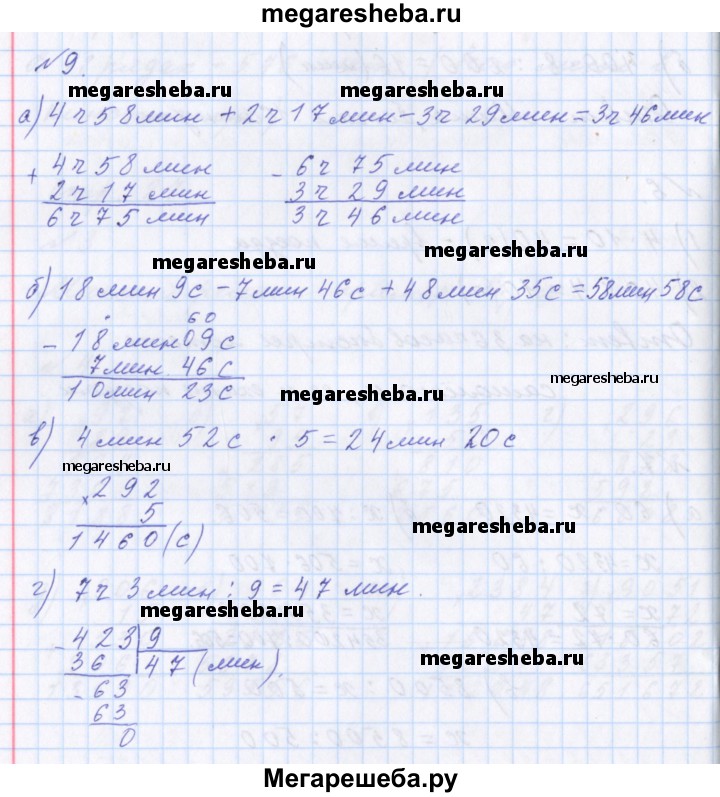 megaresheba.ru
№9.
megaresheba.ru megaresheba.ru
а) 4ч 58мин + 2ч 17мин - 3ч 29мин = 3ч 46мин
+ 4ч 58мин - 6ч 75мин
2ч 17 мин 3ч 29 мин
6ч 75 мин 3ч 46 мин
megaresheba.ru megaresheba.ru
б) 18мин 9с - 7мин 46с + 48мин 35с = 58мин 58с
60
- 18мин 09с
7мин 46с
megaresheba.ru
10мин 23с megaresheba.ru
в) 4мин 52с · 5 = 24мин 20с
megaresheba.ru
× 292
5 megaresheba.ru
1460(с)
г) 7ч 3мин : 9 = 47 мин.
megaresheba.ru
- 423 9
36 47 (мин). megaresheba.ru
- 63
63
0
Мегарешеба.ру